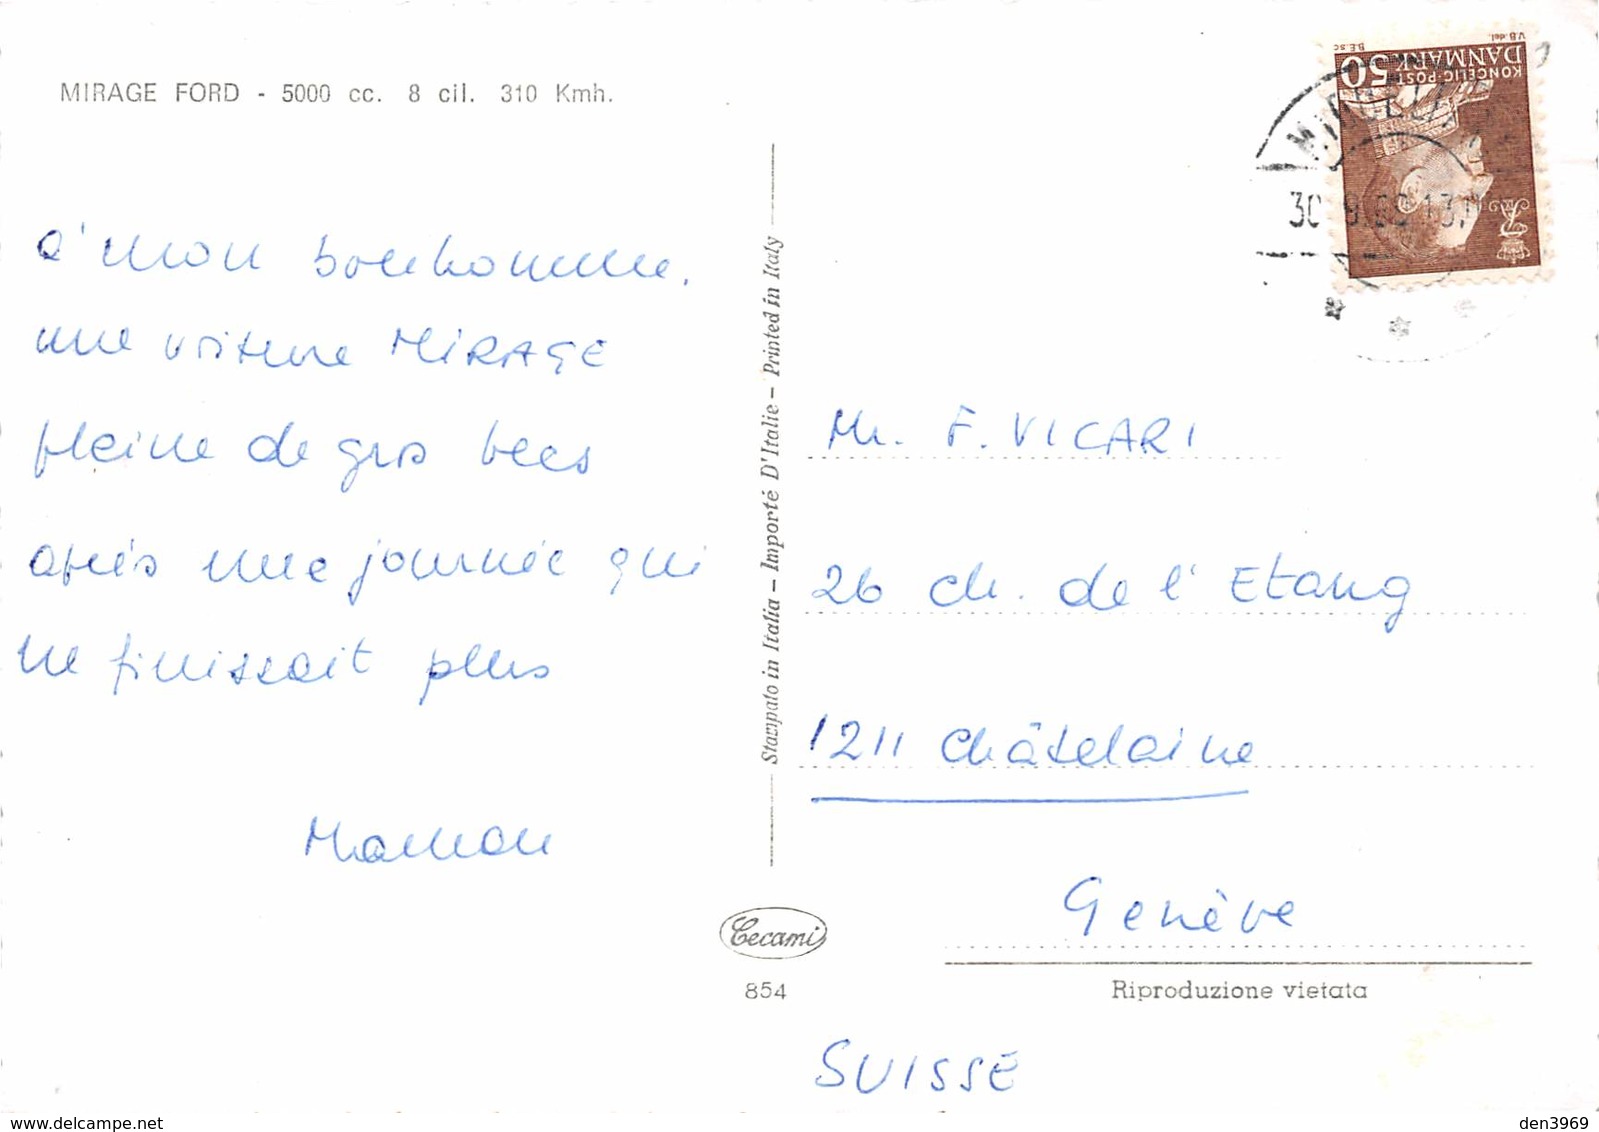 MIRAGE FORD - 5000 cc. 8 cil. 310 Kmh.
a' mon bonhomme,
une voiture MIRAGE
pleine de gros becs
après une journée qui
ne finissait plus
Maman
Stampato in Italia - Importé D'Italie - Printed in Italy
Cecami
854
DANMARK 50
KONGELIG POST
V.B del.
B.E. sc
30
Mr. F. VICARI
26 ch. de l'Etang
1211 Châtelaine
Genève
Riproduzione vietata
SUISSE
delcampe.net
den3969